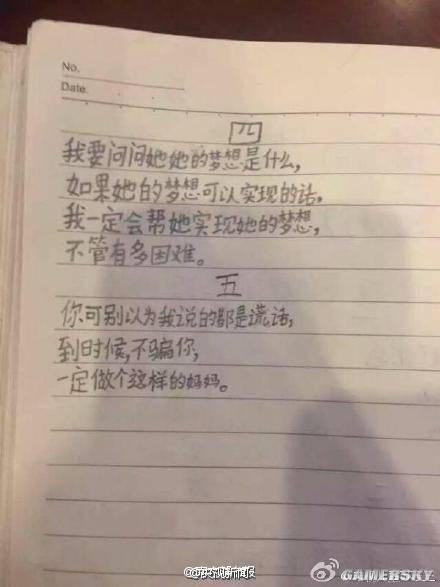 No.
Date.
四
我要问问她她的梦想是什么,
如果她的梦想可以实现的话,
我一定会帮她实现她的梦想,
不管有多困难。
五
你可别以为我说的都是谎话,
到时候,不骗你,
一定做个这样的妈妈。
GAMERSKY